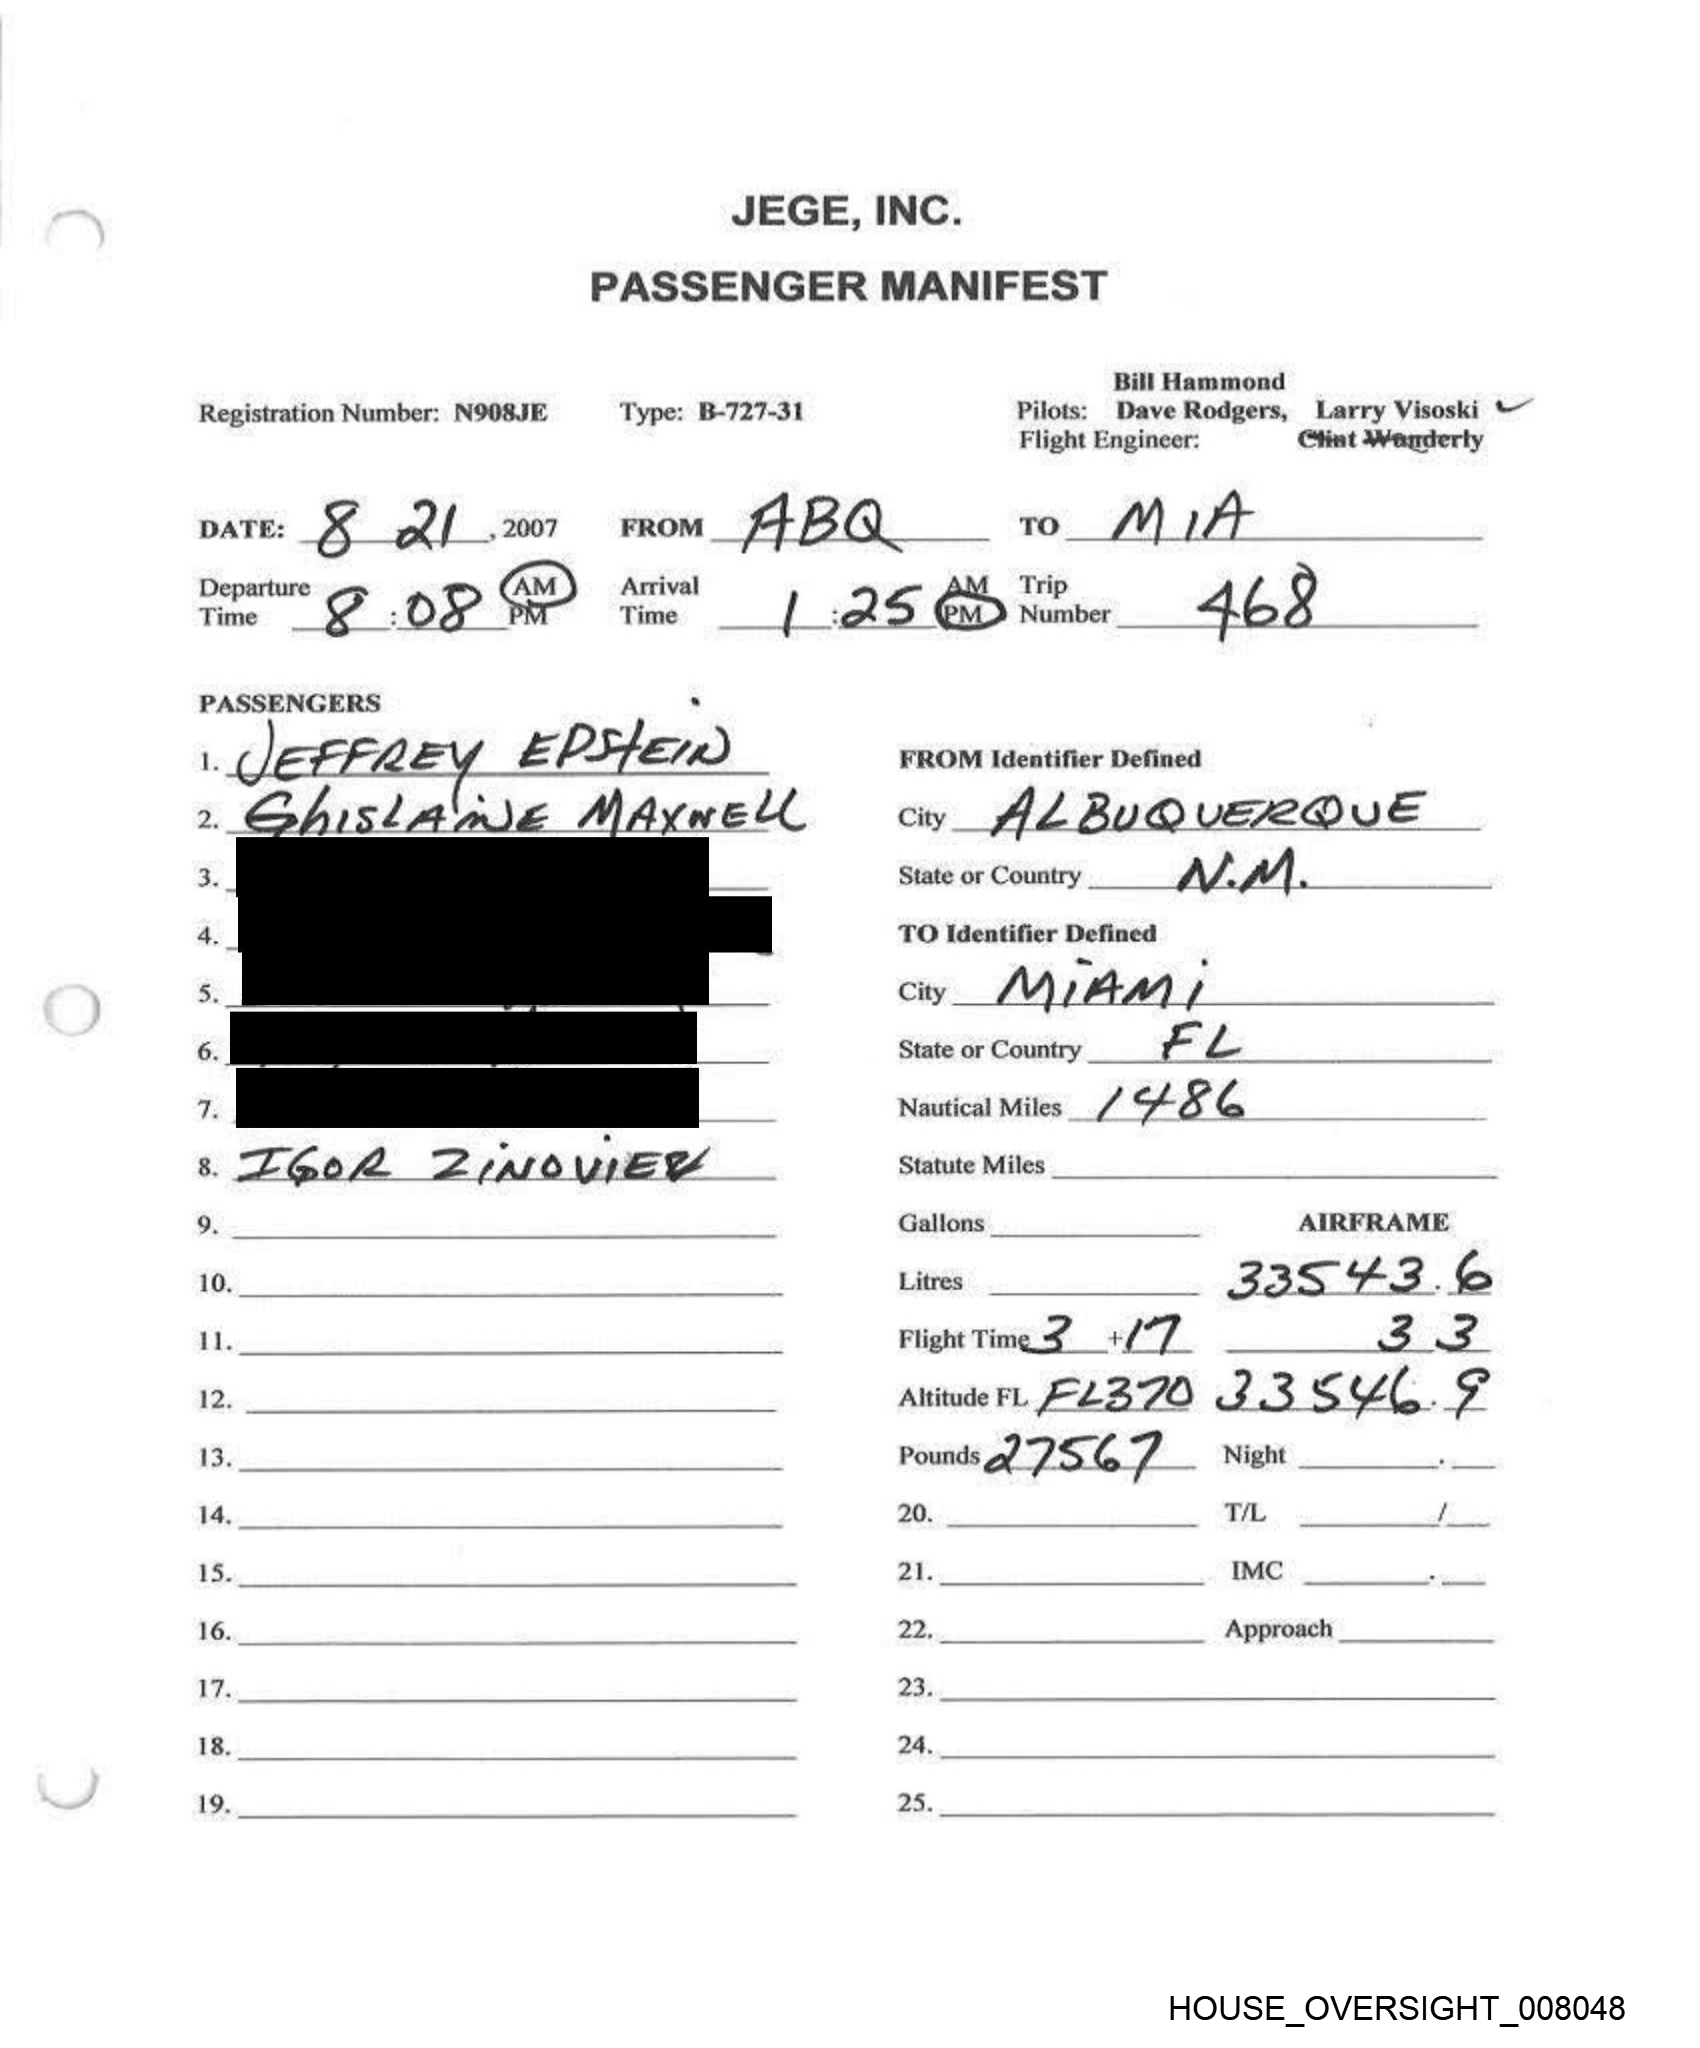 JEGE, INC.
PASSENGER MANIFEST
Bill Hammond
Registration Number: N908JE Type: B-727-31 Pilots: Dave Rodgers, Larry Visoski ✓
Flight Engineer: Clint Wanderly
DATE: 8 21, 2007 FROM ABQ TO MIA
Departure Time 8:08 AM PM Arrival Time 1:25 AM PM Trip Number 468
PASSENGERS
1. JEFFREY EPSTEIN
2. GHISLAINE MAXWELL
3.
4.
5.
6.
7.
8. IGOR ZINOVIEV
9.
10.
11.
12.
13.
14.
15.
16.
17.
18.
19.
FROM Identifier Defined
City ALBUQUERQUE
State or Country N.M.
TO Identifier Defined
City MIAMI
State or Country FL
Nautical Miles 1486
Statute Miles
Gallons AIRFRAME
Litres 33543.6
Flight Time 3 +17 3 3
Altitude FL FL370 33546.9
Pounds 27567 Night .
20. T/L /
21. IMC .
22. Approach
23.
24.
25.
HOUSE_OVERSIGHT_008048